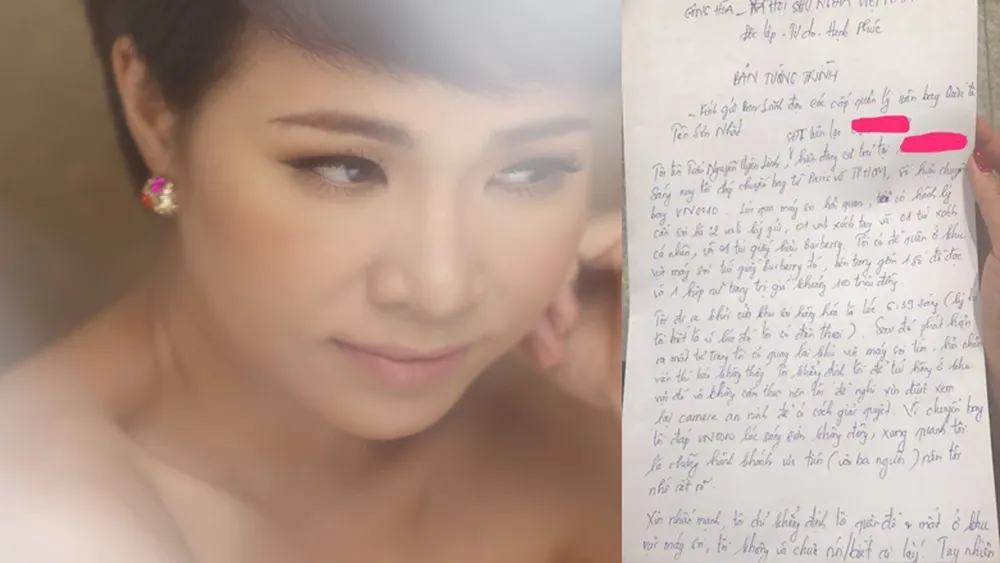 CỘNG HÒA - XÃ HỘI CHỦ NGHĨA VIỆT NAM
Độc lập - Tự do - Hạnh Phúc
BẢN TƯỜNG TRÌNH
- Kính gửi Ban Lãnh đạo các cấp quản lý sân bay Quốc tế
Tân Sơn Nhất
SĐT liên lạc
Tôi tên Trần Nguyễn Uyên Linh, hiện đang cư trú tại
Sáng nay tôi đáp chuyến bay từ Paris về TP.HCM, số hiệu chuyến
bay VN0010. Lúc qua máy soi hải quan, tôi có hành lý
cần soi là 2 vali ký gửi, 01 vali xách tay và 01 túi xách
cá nhân, và 01 túi giấy hiệu Burberry. Tôi có để quên ở khu
vực máy soi túi giấy Burberry đó, bên trong gồm 1 số đồ đạc
và 1 hộp nữ trang trị giá khoảng 100 triệu đồng.
Tôi đi ra khỏi cửa khu soi hàng hoá là lúc 6:39 sáng (lý do
tôi biết là vì lúc đó tôi có điện thoại). Sau đó phát hiện
ra mất tư trang tôi có quay lại khu vực máy soi tìm, hỏi nhân
viên thì báo không thấy. Tôi khẳng định tôi để túi hàng ở khu
vực đó và không còn thực nên tôi đề nghị xin được xem
lại camera an ninh để có cách giải quyết. Vì chuyến bay
tôi đáp VN0010 lúc sáng sớm không đông, xung quanh tôi
là những hành khách ưu tiên (vài ba người) nên tôi
nhớ rất rõ
Xin nhấn mạnh, tôi chỉ khẳng định tôi quên đồ & mất ở khu
vực máy soi, tôi không và chưa nói/biết ai lấy! Tuy nhiên